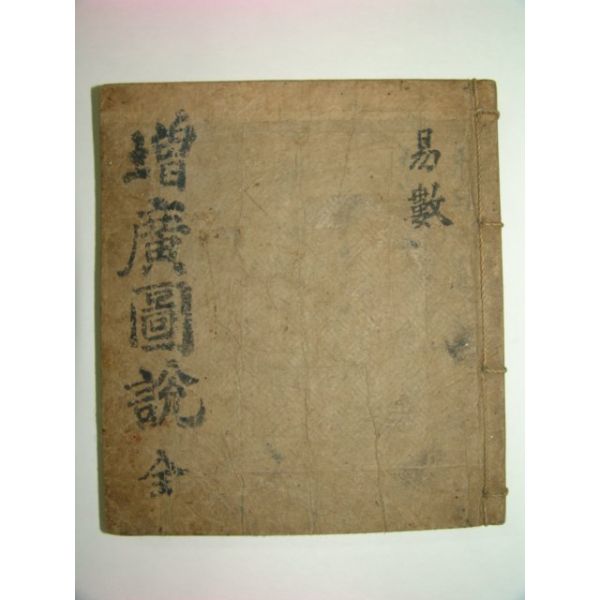 易數
增廣圖說 全